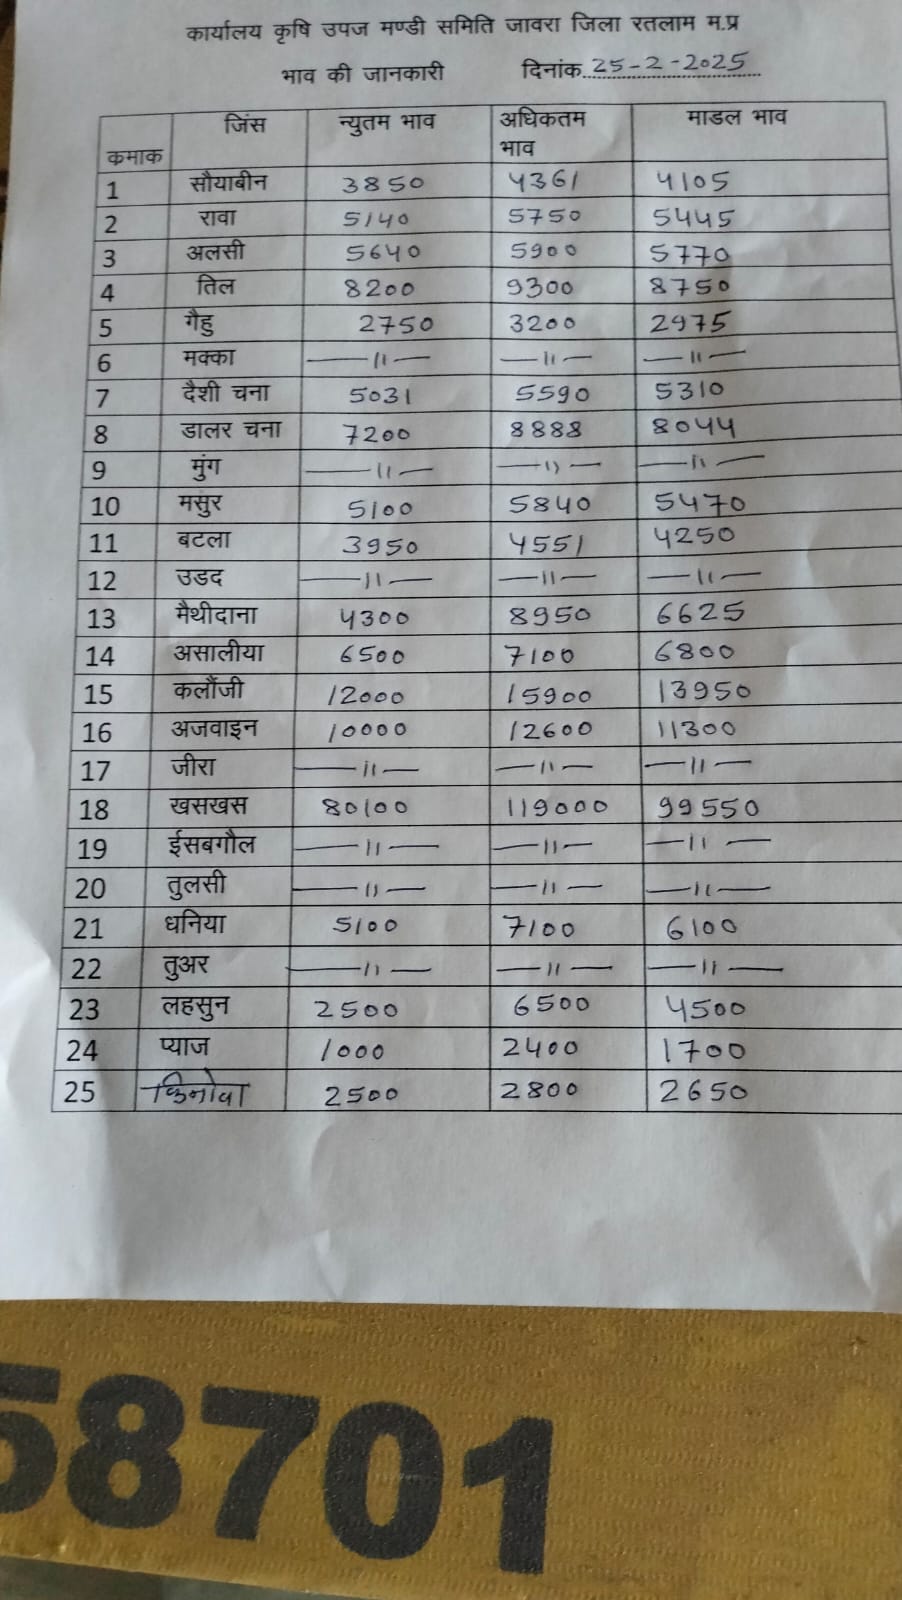 कार्यालय कृषि उपज मण्डी समिति जावरा जिला रतलाम म.प्र
भाव की जानकारी दिनांक 25-2-2025
कमाक जिंस न्युतम भाव अधिकतम भाव माडल भाव
1 सौयाबीन 3850 4361 4105
2 रावा 5140 5750 5445
3 अलसी 5640 5900 5770
4 तिल 8200 9300 8750
5 गैहु 2750 3200 2975
6 मक्का —11— —11— —11—
7 दैशी चना 5031 5590 5310
8 डालर चना 7200 8888 8044
9 मुंग —11— —11— —11—
10 मसुर 5100 5840 5470
11 बटला 3950 4551 4250
12 उडद —11— —11— —11—
13 मैथीदाना 4300 8950 6625
14 असालीया 6500 7100 6800
15 कलौंजी 12000 15900 13950
16 अजवाइन 10000 12600 11300
17 जीरा —11— —11— —11—
18 खसखस 80100 119000 99550
19 ईसबगौल —11— —11— —11—
20 तुलसी —11— —11— —11—
21 धनिया 5100 7100 6100
22 तुअर —11— —11— —11—
23 लहसुन 2500 6500 4500
24 प्याज 1000 2400 1700
25 किनोवा 2500 2800 2650
58701